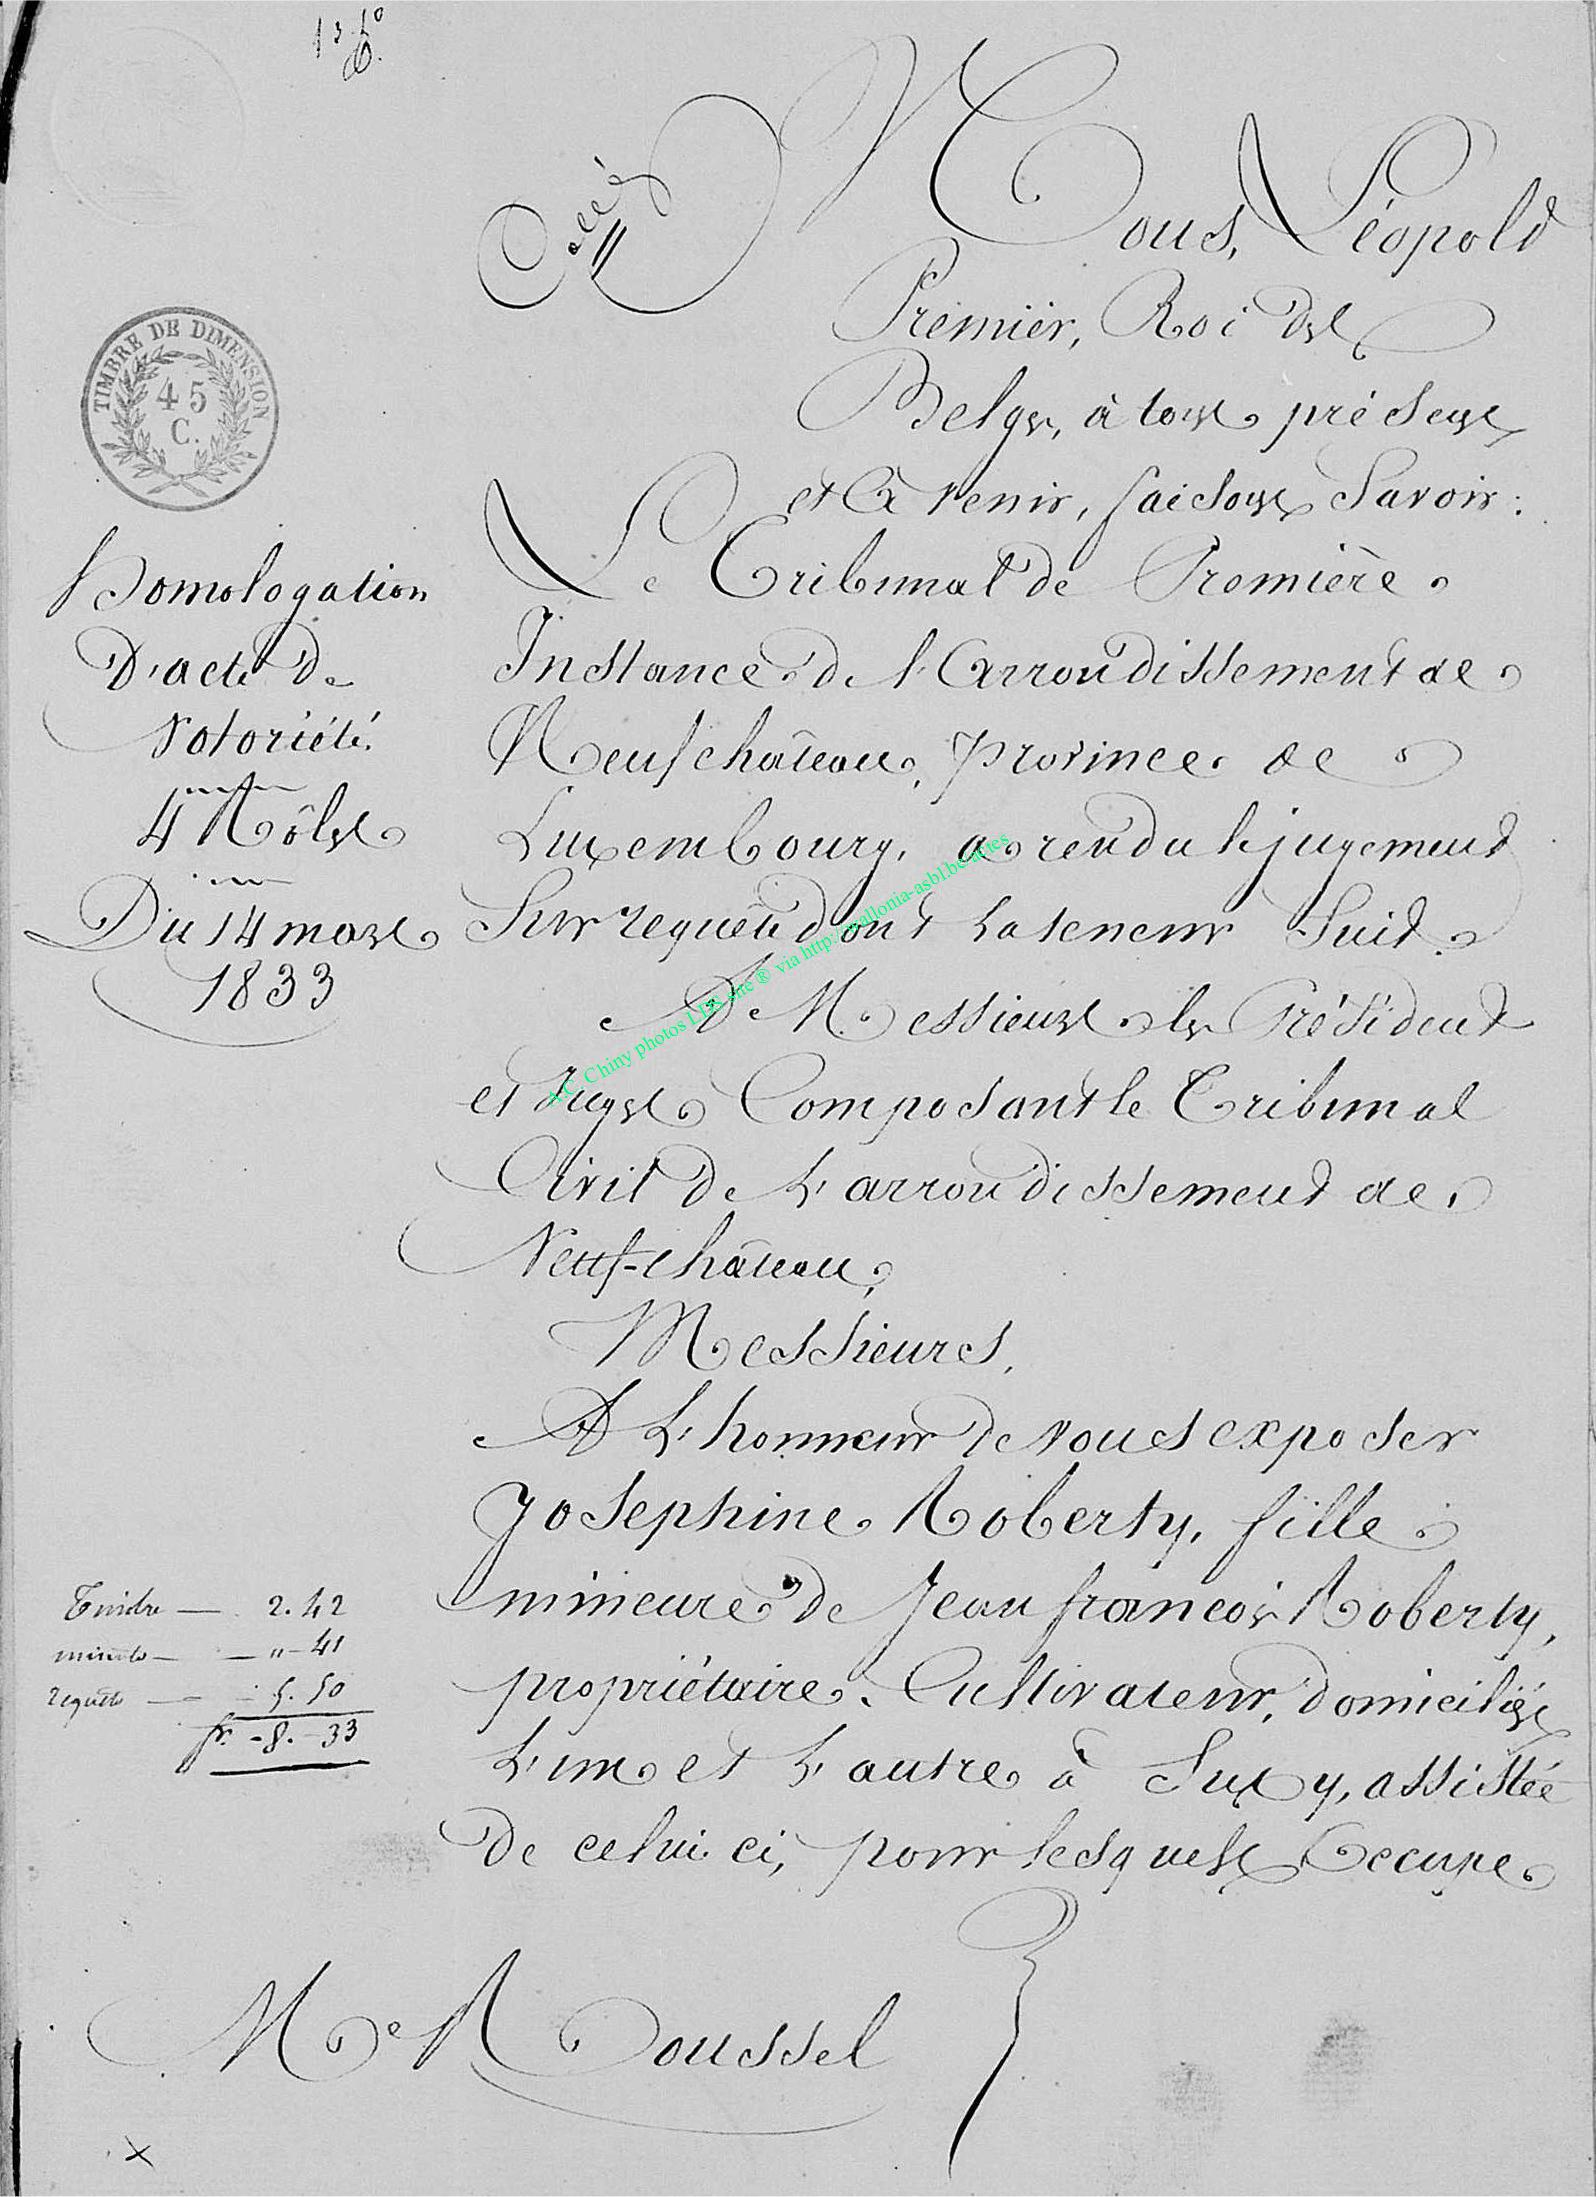 Nous, Léopold
Premier, Roi des
Belges, à tous présens
et à venir, faisons Savoir :
TIMBRE DE DIMENSION
45
C.
Homologation
D'acte De
Notoriété.
4 Rôles
Du 14 mars
1833
Le Tribunal de Première
Instance de l'Arrondissement de
Neufchâteau, province de
Luxembourg, a rendu le jugement
Sur requête dont la teneur Suit.
A Messieurs les Président
et Juges Composant le Tribunal
Civil de L'arrondissement de
Neuf-château,
Messieurs,
A L'honneur de vous exposer
Josephine Roberty, fille
mineure de Jean françois Roberty,
propriétaire, Cultivateur, domiciliés
L'un et L'autre à Suxy, assistée
De celui ci, pour lesquels Occupe
Me Roussel
Timbre — 2. 42
minute — — " — 41
requête — — 5. 50
fr. - 8. - 33
A.C. Chiny photos LDS site ® via http://wallonia-asbl.be/actes